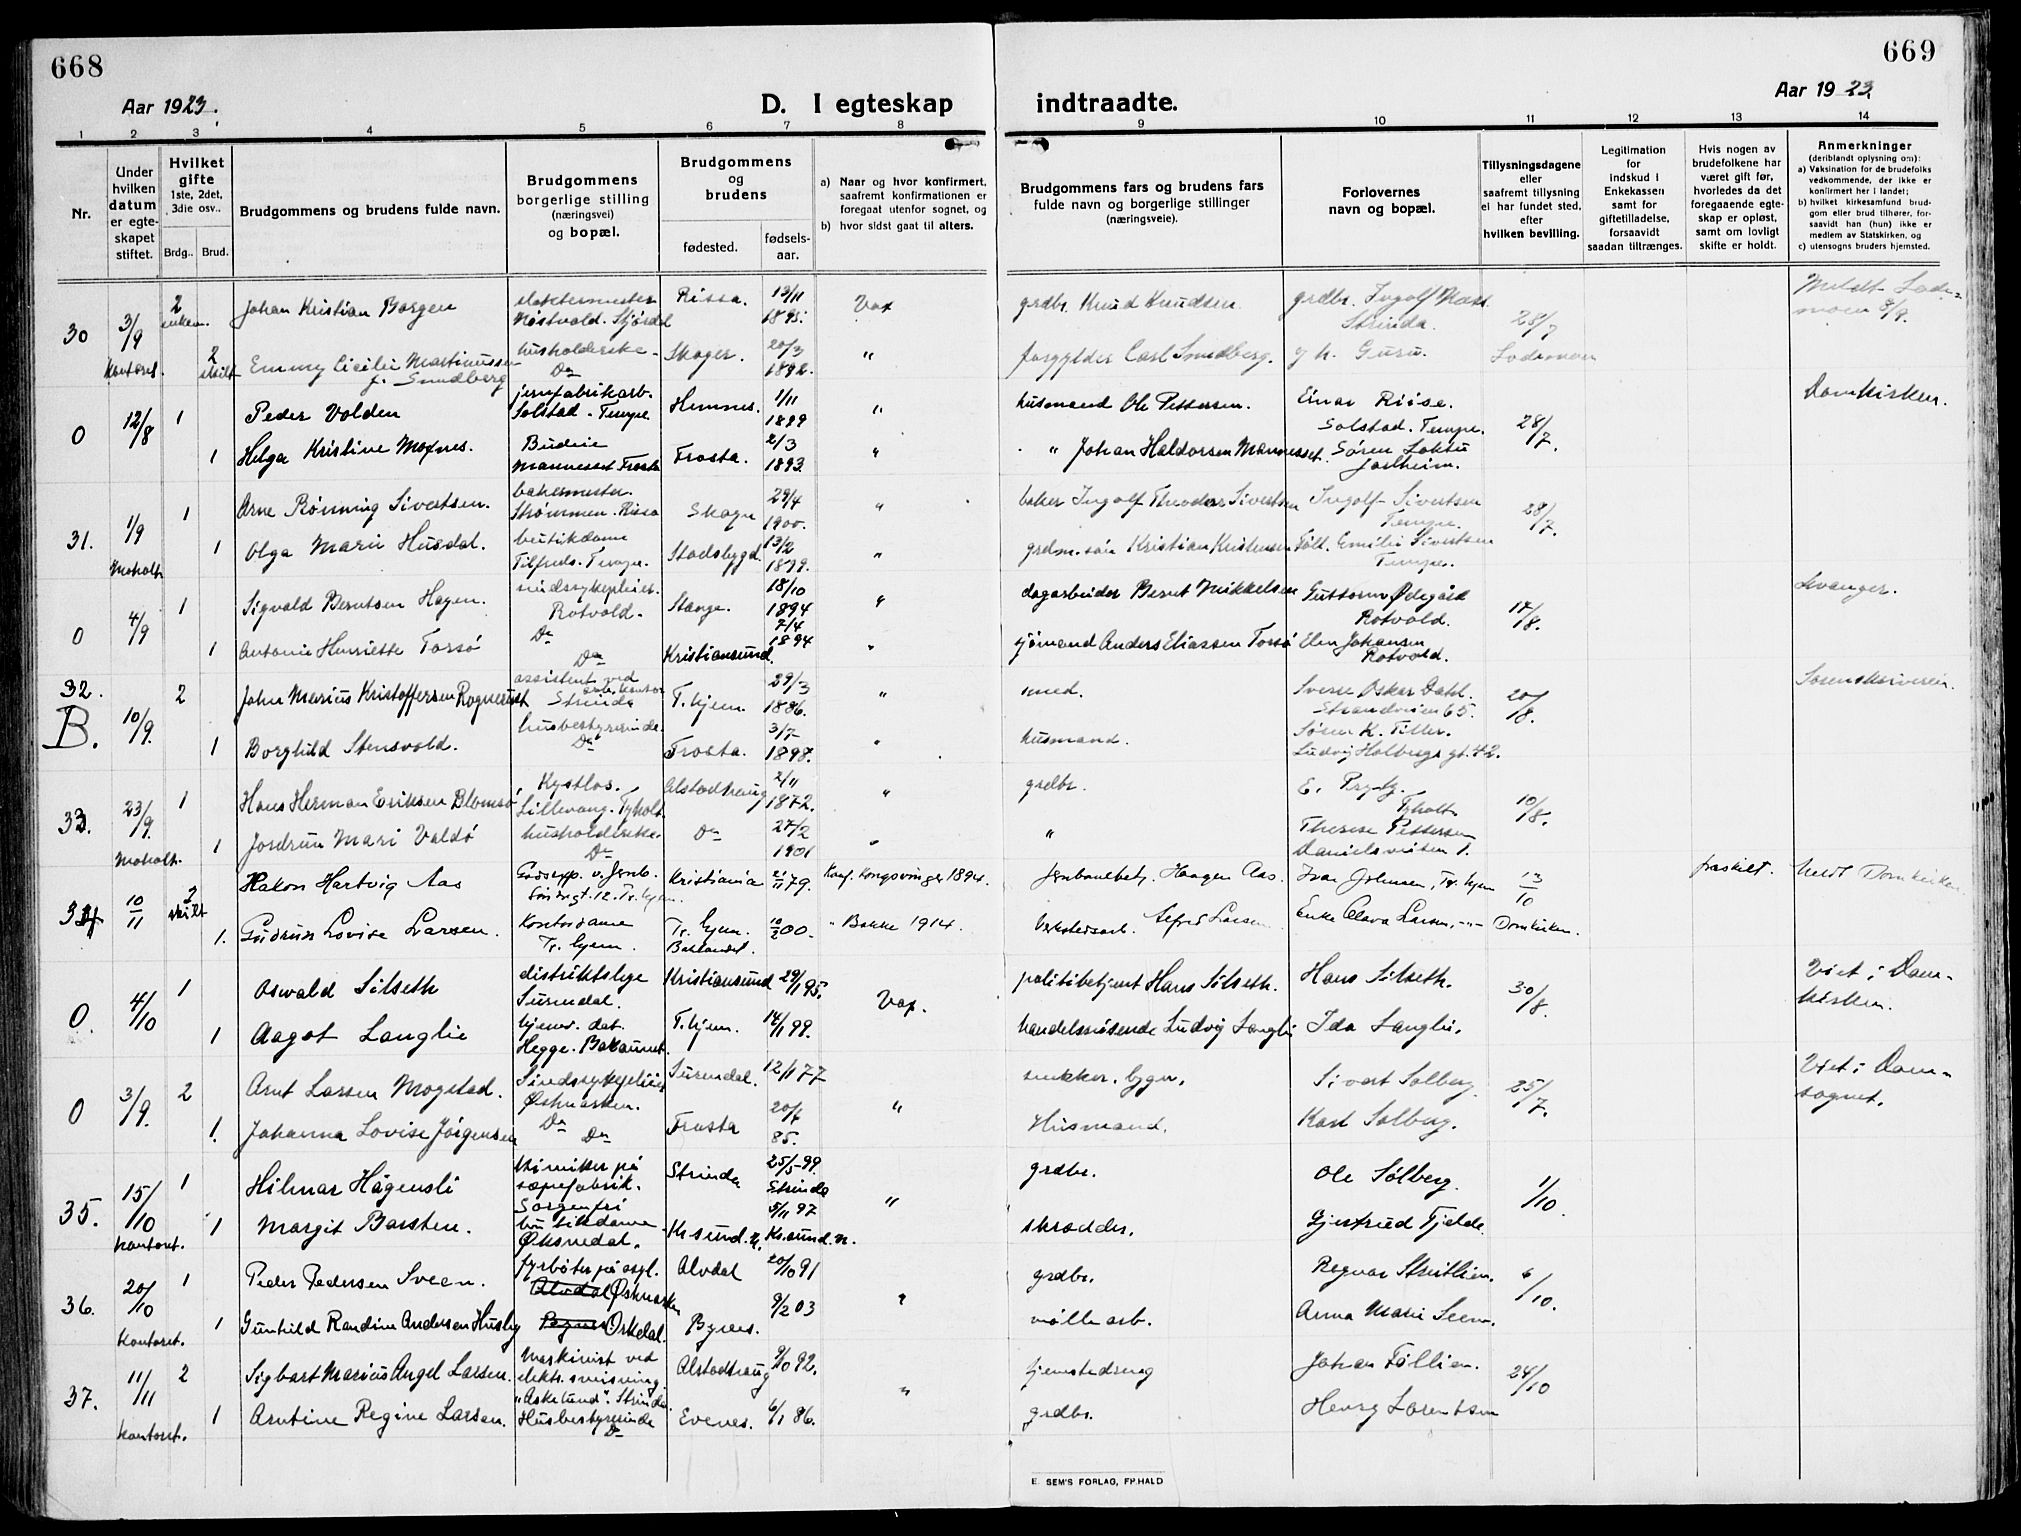 668
Aar 1923.
D. I egteskap
indtraadte.
Aar 1923
669
1 2 3 4 5 6 7 8 9 10 11 12 13 14
Nr.
Under hvilken datum er egteskapet stiftet.
Hvilket gifte
1ste, 2det, 3die osv..
Brdg.. Brud.
Brudgommens og brudens fulde navn.
Brudgommens borgerlige stilling (næringsvei) og bopæl.
Brudgommens og brudens
fødested. fødselsaar.
a) Naar og hvor konfirmert, saafremt konfirmationen er foregaat utenfor sognet, og
b) hvor sidst gaat til alters.
Brudgommens fars og brudens fars fulde navn og borgerlige stillinger (næringsveie).
Forlovernes navn og bopæl.
Tillysningsdagene eller saafremt tillysning ei har fundet sted, efter hvilken bevilling.
Legitimation for indskud i Enkekassen samt for giftetilladelse, forsaavidt saadan tiltrænges.
Hvis nogen av brudefolkene har været gift før, hvorledes da det foregaaende egteskap er opløst, samt om lovligt skifte er holdt.
Anmerkninger
(deriblandt oplysning om):
a) Vaksination for de brudefolks vedkommende, der ikke er konfirmert her i landet;
b) hvilket kirkesamfund brudgom eller brud tilhører, forsaavidt han (hun) ikke er medlem av Statskirken, og
c) utensogns bruders hjemsted.
30 3/9 2 Johan Kristian Borgen slaktermester Rissa. 13/11 1895. Vax grdbr. Knud Knudsen grdbr. Ingolf Næss Strinda. 28/7
kontoret. 2 skilt Emmy Cicilie Martinussen f. Sundberg husholderske Do Skoger. 20/3 1892. " forgylder Carl Sundberg.
0 12/8 1 Peder Volden jernfabrikarb. Solstad. Tempe Hemnes. 1/11 1899 " husmand Ole Pettersen. Einar Riise. Solstad. Tempe. 28/7. Domkirken.
1 Helga Kristine Moxnes. Budeie Mannesset Frosta Frosta. 2/3 1893. " " Johan Haldorsen Mannesset. Søren Løktu
31. 1/9 1 Arne Rönning Sivertsen. bakermester. Strømmen. Rissa Skogn 29/4 1900. " baker Ingolf Theodor Sivertsen Ingolf Sivertsen Tempe. 28/7.
Moholt 1 Olga Marie Husdal. butikdame Tilfreds. Tempe. Stadsbygd. 13/2 1899. " Kristian Kristensen Emilie Sivertsen Tempe.
0 4/9 1 Sigvald Berntsen Hagen. sindssykepleier. Rotvold. Stange. 18/10 1894 " dagarbeider Bernt Mikkelsen Guttorm Ødegård Rotvold. 17/8. Levanger.
1 Antonie Henriette Torsø Do Do Kristiansund. 7/4 1894 " sjömand Anders Eliassen Torsø Elen Johansen Rotvold.
32. B. 10/9. 2 John Marius Kristoffersen Rognerudt assistent ved Strinda T.hjem. 29/3 1886. " smed. Sverre Oskar Dahl. Strandveien 65. 20/8. Sorenskriveren.
1 Borghild Stensvold. husbestyrerinde. Do Frosta. 3/7 1898. " husmand. Søren K. Tiller. Ludvig Holbergs gt. 42.
33. 23/9. 1 Hans Herman Eriksen Blomsø Kystlos. Lillevang. Tyholt Alstadhaug 2/11 1872. " grdbr. E. Tyholt 10/8.
Moholt. 1 Jordrun Mari Valdö husholderske. Do Do 27/2 1901 " " Therese Pettersen Danielsveiten 1.
34 10/11 2 skilt Hakon Hartvig Aas Godsexp. v. Jernb. Kristiania 79. Konf. Kongsvinger 1894. Jernbanebetj. Haagen Aas. Ivar Johnsen, Tr.hjem 13/10 fraskilt. Meldt Domkirken.
1. Gudrun Lovise Larsen. Kontordame Tr.hjem. Tr.hjem. Baklandet. 10/2 00. " Bakke 1914. Verkstedsarb. Alfred Larsen Enke Clara Larsen, Domkirken.
0. 4/10 1 Oswald Silseth distriktslege Surendal. Kristiansund 29/1 95. Vax. politibetjent Hans Silseth. Hans Silseth. 30/8. Viet i Domkirken.
1 Aagot Langlie hjemv. dat. Hegge. Bakaunet. T.hjem. 14/1 99. handelsreisende Ludvig Langlie Ida Langlie.
0 3/9. 2 Arnt Larsen Mogstad. Sindssykepleier Østmarken. Surendal. 12/11 77 " snekker. bygm. Sivert Solberg. 25/7. Viet i Domsognet.
1. Johanna Lovise Jørgensen Do Do Frosta 85. Husmand. Karl Solberg.
35. 15/10 1 Hilmar Hågensli kemiker på sæpefabrik. Sorgenfri Strinda 25/5 99. Strinda " grdbr. Ole Sølberg. 1/10.
kontoret. 1 Margit Barsten. butikdame Øksnedal. Kr.sund. n. 5/11 97 Kr.sund. n. skrædder. Gjertrud Fjelde
36. 20/10 1 Peder Pedersen Sveen. fyrbøter på asyl. Østmarken Alvdal 20/10 91 " grdbr. Ragnar Streitlien. 6/10.
kontoret. 1 Gunhild Randine Andersen Husby Orkdal. Bynes. 9/2 03 møllearb. Anna Marie Seem.
37. 11/11 2 Sigbart Marius Angel Larsen. Maskinist ved elektr. sveisning "Askelund". Strinda Alstadhaug 9/10 92. " tjenestedreng Johan Föllien. 24/10
kontoret. 1 Arntine Regine Larsen. Husbestyrerinde Do Evenes. 6/1 86. grdbr. Henry Lorentsen
E. SEM'S FORLAG, FR.HALD